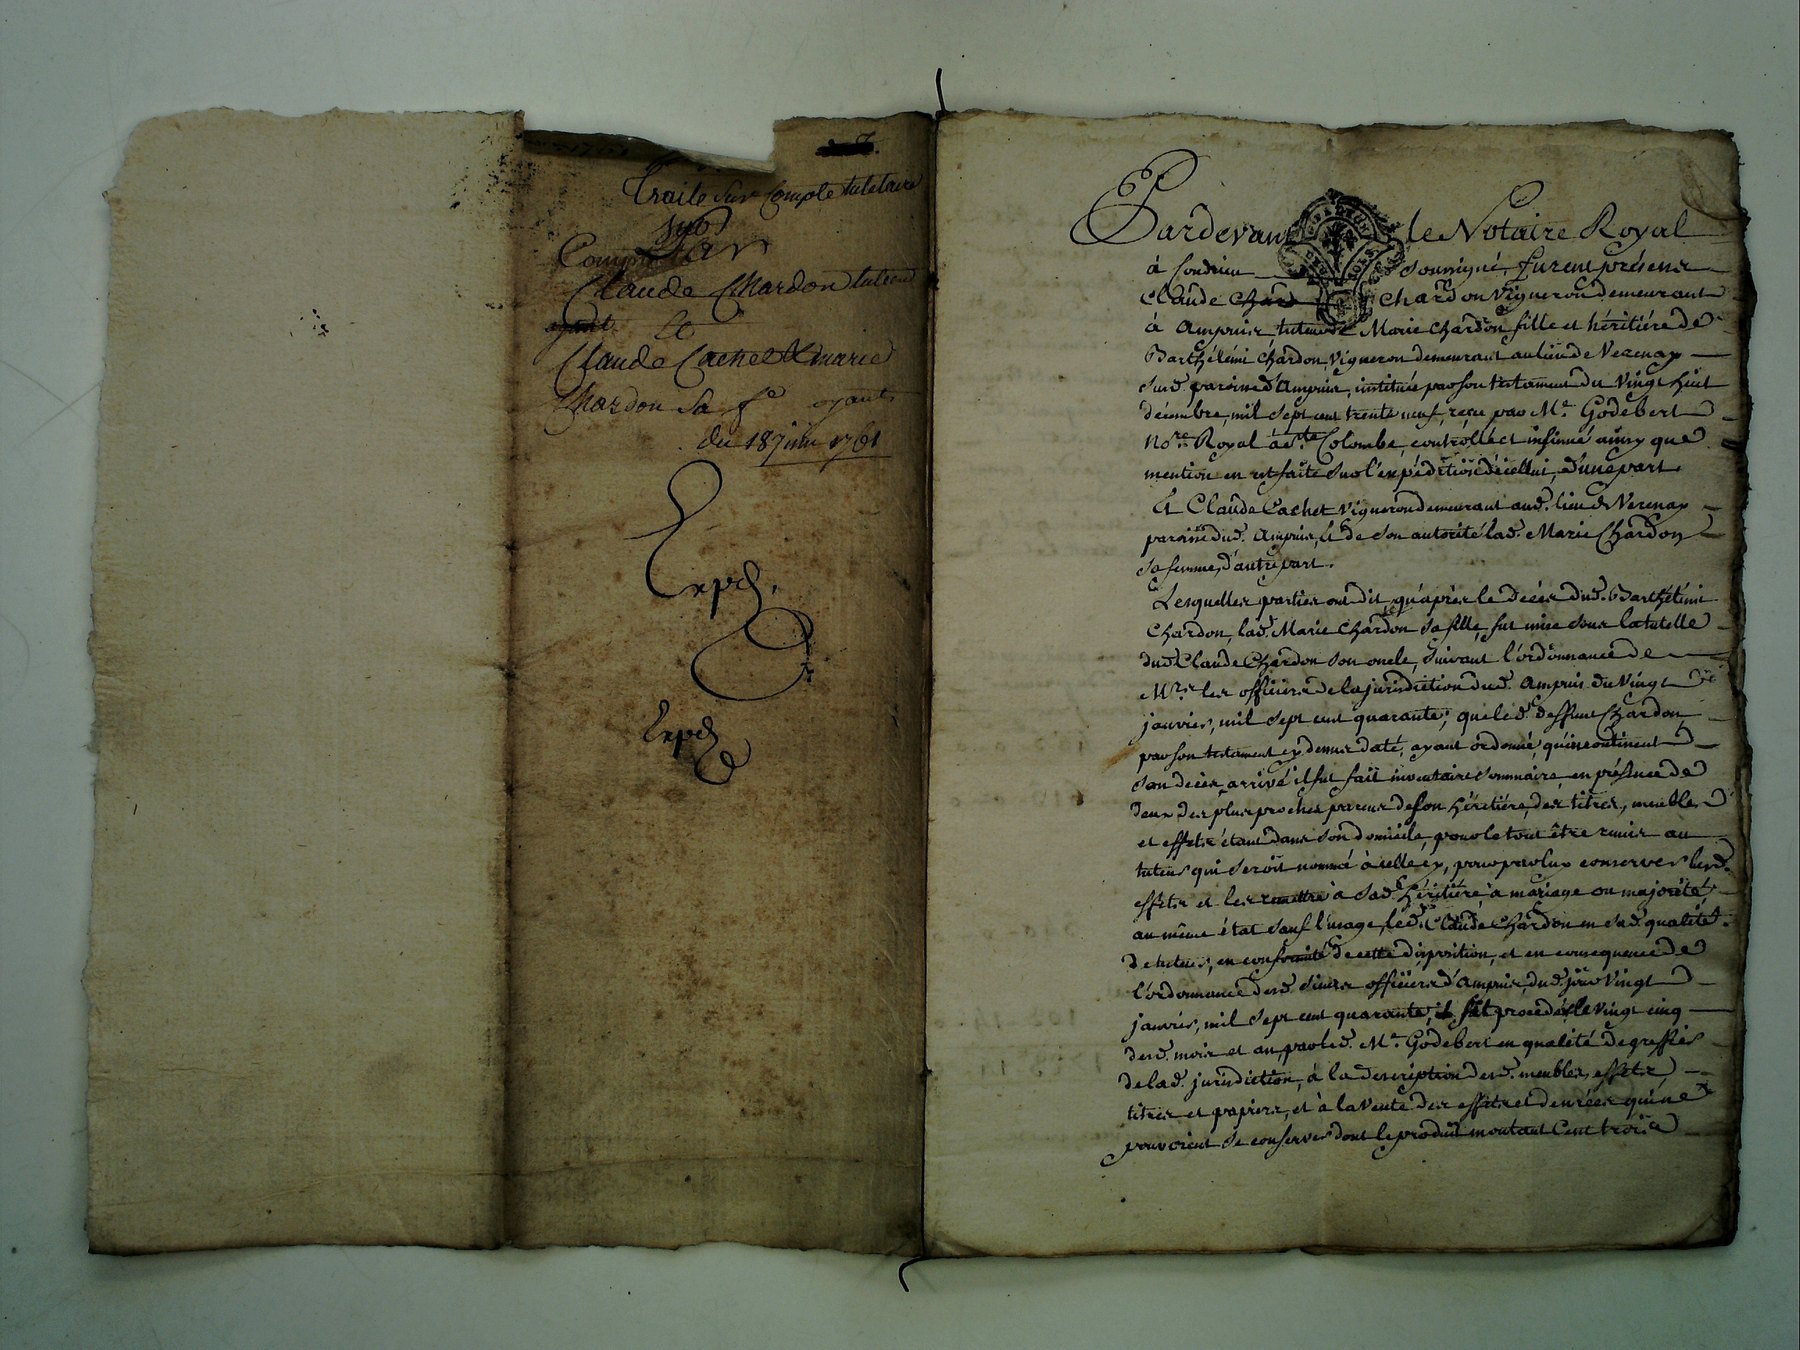 Traité sur Compte tutelaire
Par
Claude Chardon tuteur
Claude Cachet & marie
Chardon sa fe ayants
du 18 juin 1761
Expd.
Expd
Pardevant le Notaire Royal
à Condrieu soussigné, furent présens
Claude Chardon vigneron demeurant
à Ampuis, tuteur de Marie Chardon fille et héritiére de
Barthélémi Chardon, vigneron demeurant au lieu de Verenay
sud. paroisse d'Ampuis, instituée par son testament du vingt huit
décembre, mil sept cent trente neuf, reçu par Me. Godebert
Nore. Royal à Ste Colombe, controllé et insinué ainsy que
mention en est faite sur l'expédition d'icellui, d'une part.
Et Claude Cachet vigneron demeurant aud. lieu de Verenay
paroisse dud. Ampuis, & de son autorité lad. Marie Chardon
sa femme, d'autre part.
Lesquelles parties ont dit, qu'après le décès dud. Barthélémi
Chardon, lad. Marie Chardon sa fille, fut mise sous la tutelle
dud. Claude Chardon son oncle, suivant l'ordonnance de
Mrs. les officiers de la jurisdiction dud. Ampuis du vingt
janvier, mil sept cent quarante; que led. deffunt Chardon,
par son testament cy dessus daté, ayant ordonné, qu'incontinent
son decès arrivé il fut fait inventaire sommaire en présence de
deux des plus proches parens de son héritiére, des titres, meubles
et effets étant dans son domicile, pour le tout être remis au
tuteur qui seroit nommé à icelle cy, pour par luy conserver lesd.
effets et les remettre à sad. héritiére, à mariage ou majorité,
au même état sauf l'usage, led. Claude Chardon en sad. qualité
de tuteur, en conformité de cette disposition, et en consequence de
l'ordonnance desd. sieurs officiers d'Ampuis, dud. jour vingt
janvier, mil sept cent quarante, il fit procéder le vingt cinq
desd. mois et an, par led. Me. Godebert en qualité de greffier
de lad. jurisdiction, à la description desd. meubles, effets,
titres et papiers, et à la vente des effets et denrées qui ne
pouvoient se conserver dont le produit montant Cent trois